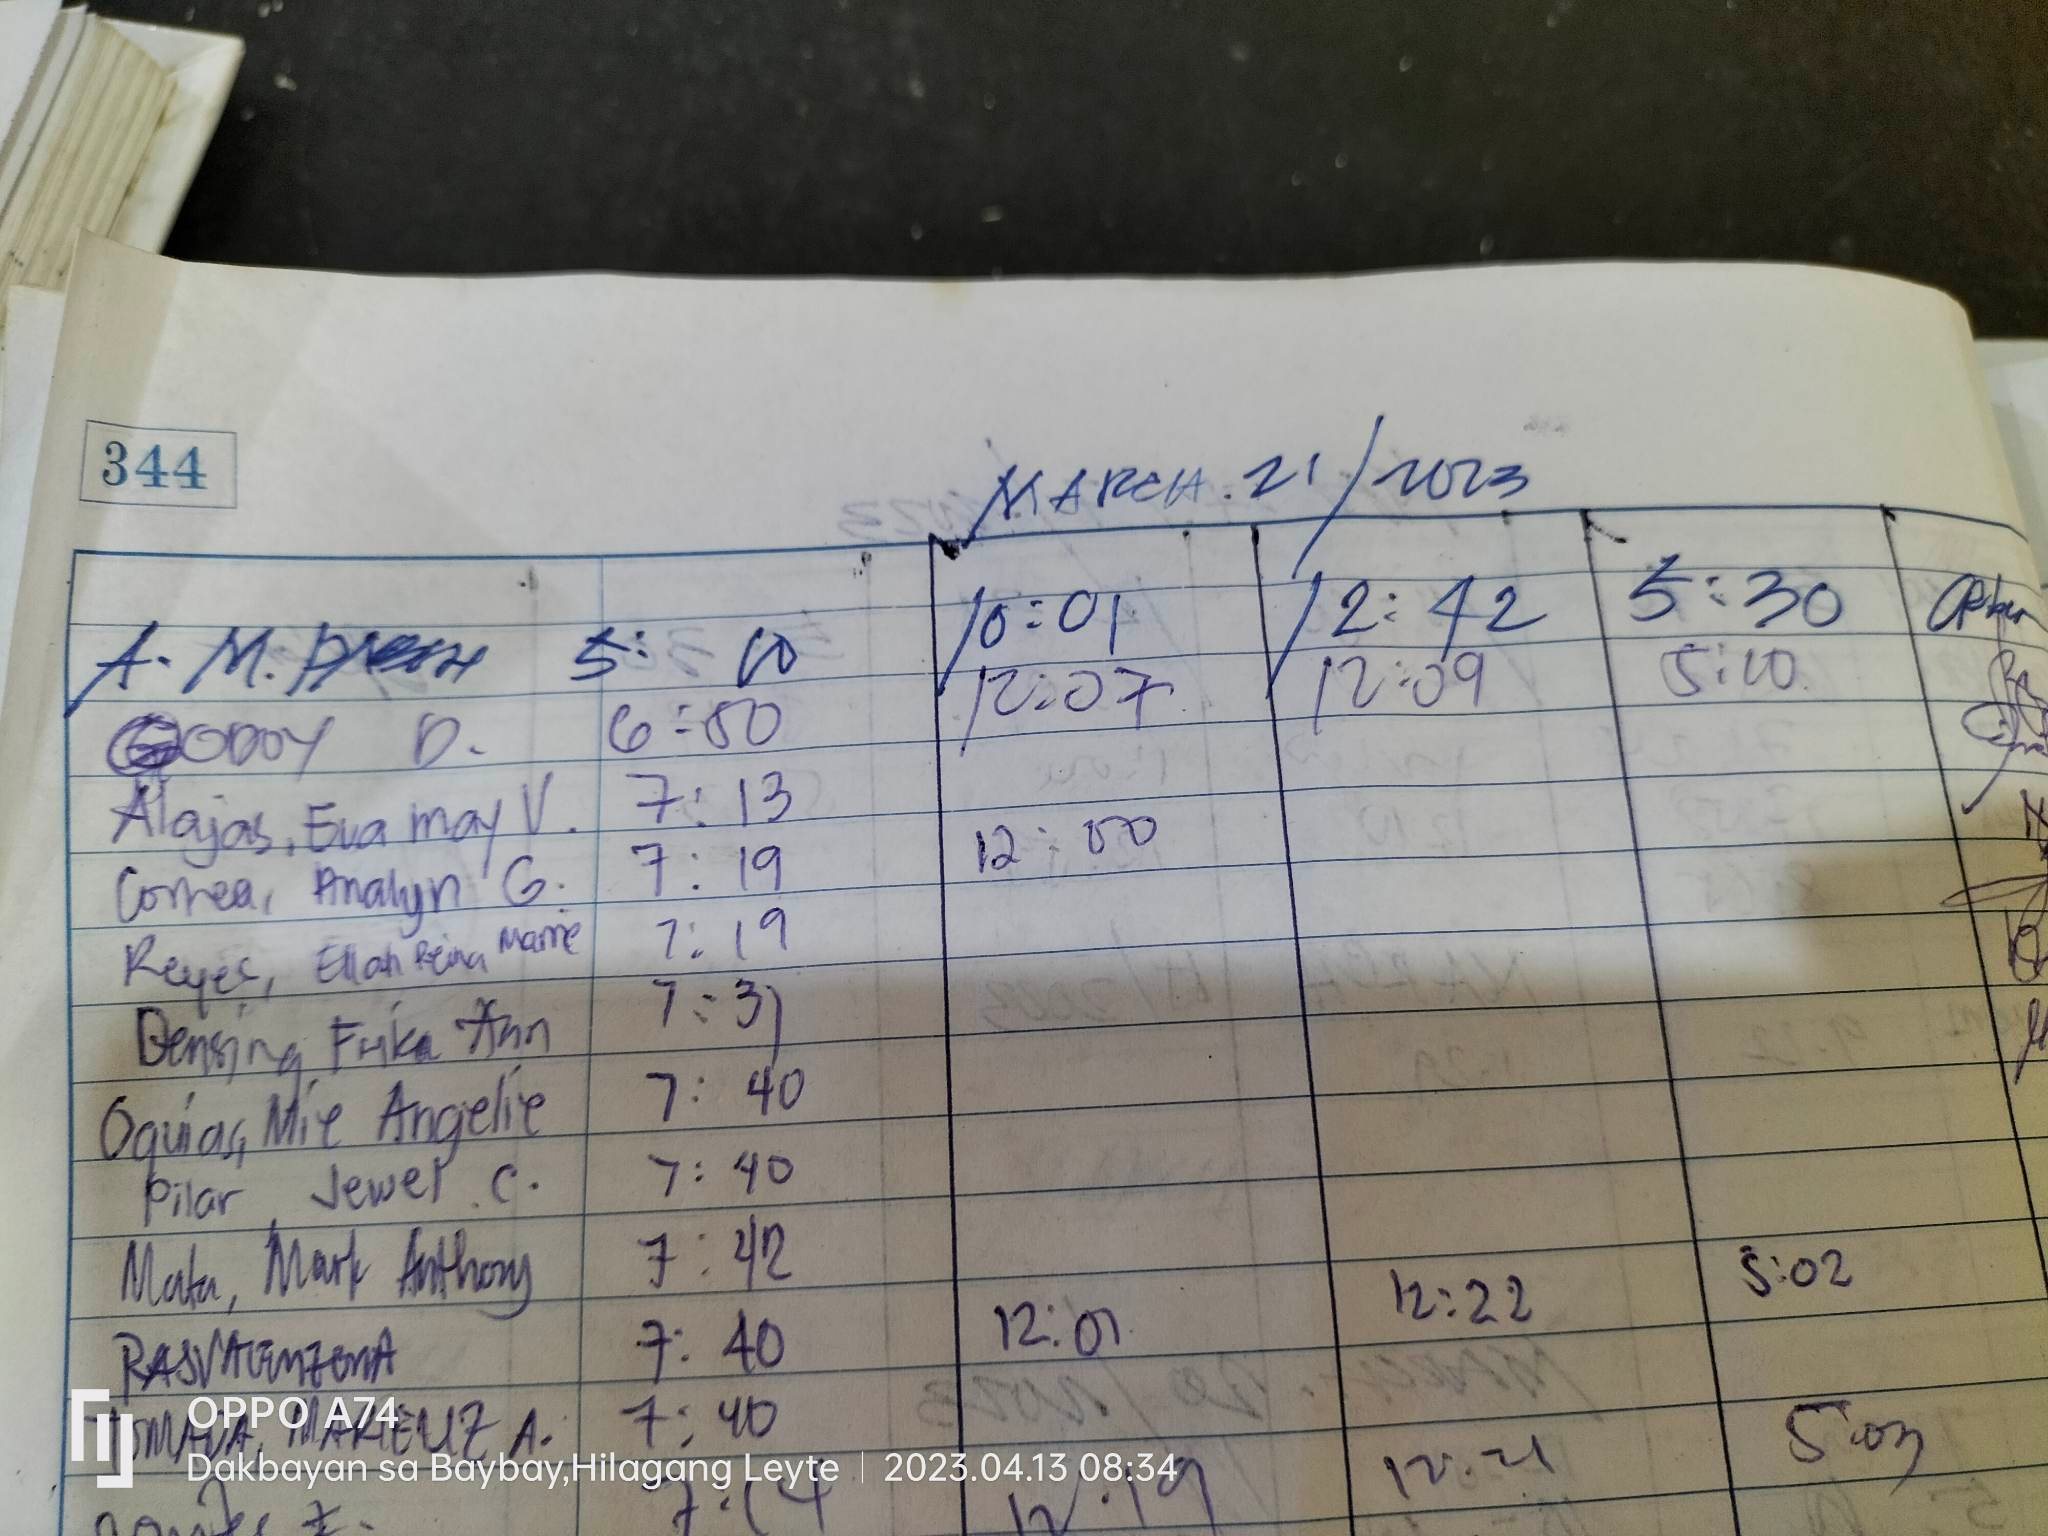 344
MARCH. 21/2023
A. M. 5: 10 10:01 12:42 5:30
GODOY D. 6:50 12:07 12:09 5:10
Alajas, Eva may V. 7:13
Correa, Analyn G. 7:19 12:00
Reyes, Ellah Reina Marie 7:19
Densing Erika Ann 7:31
Oquias, Mie Angelie 7:40
Pilar Jewel C. 7:40
Mata, Mark Anthony 7:42
7:40 12:01 12:22 5:02
A. 7:40
12:19 12:21 5:03
OPPO A74
Dakbayan sa Baybay,Hilagang Leyte | 2023.04.13 08:34